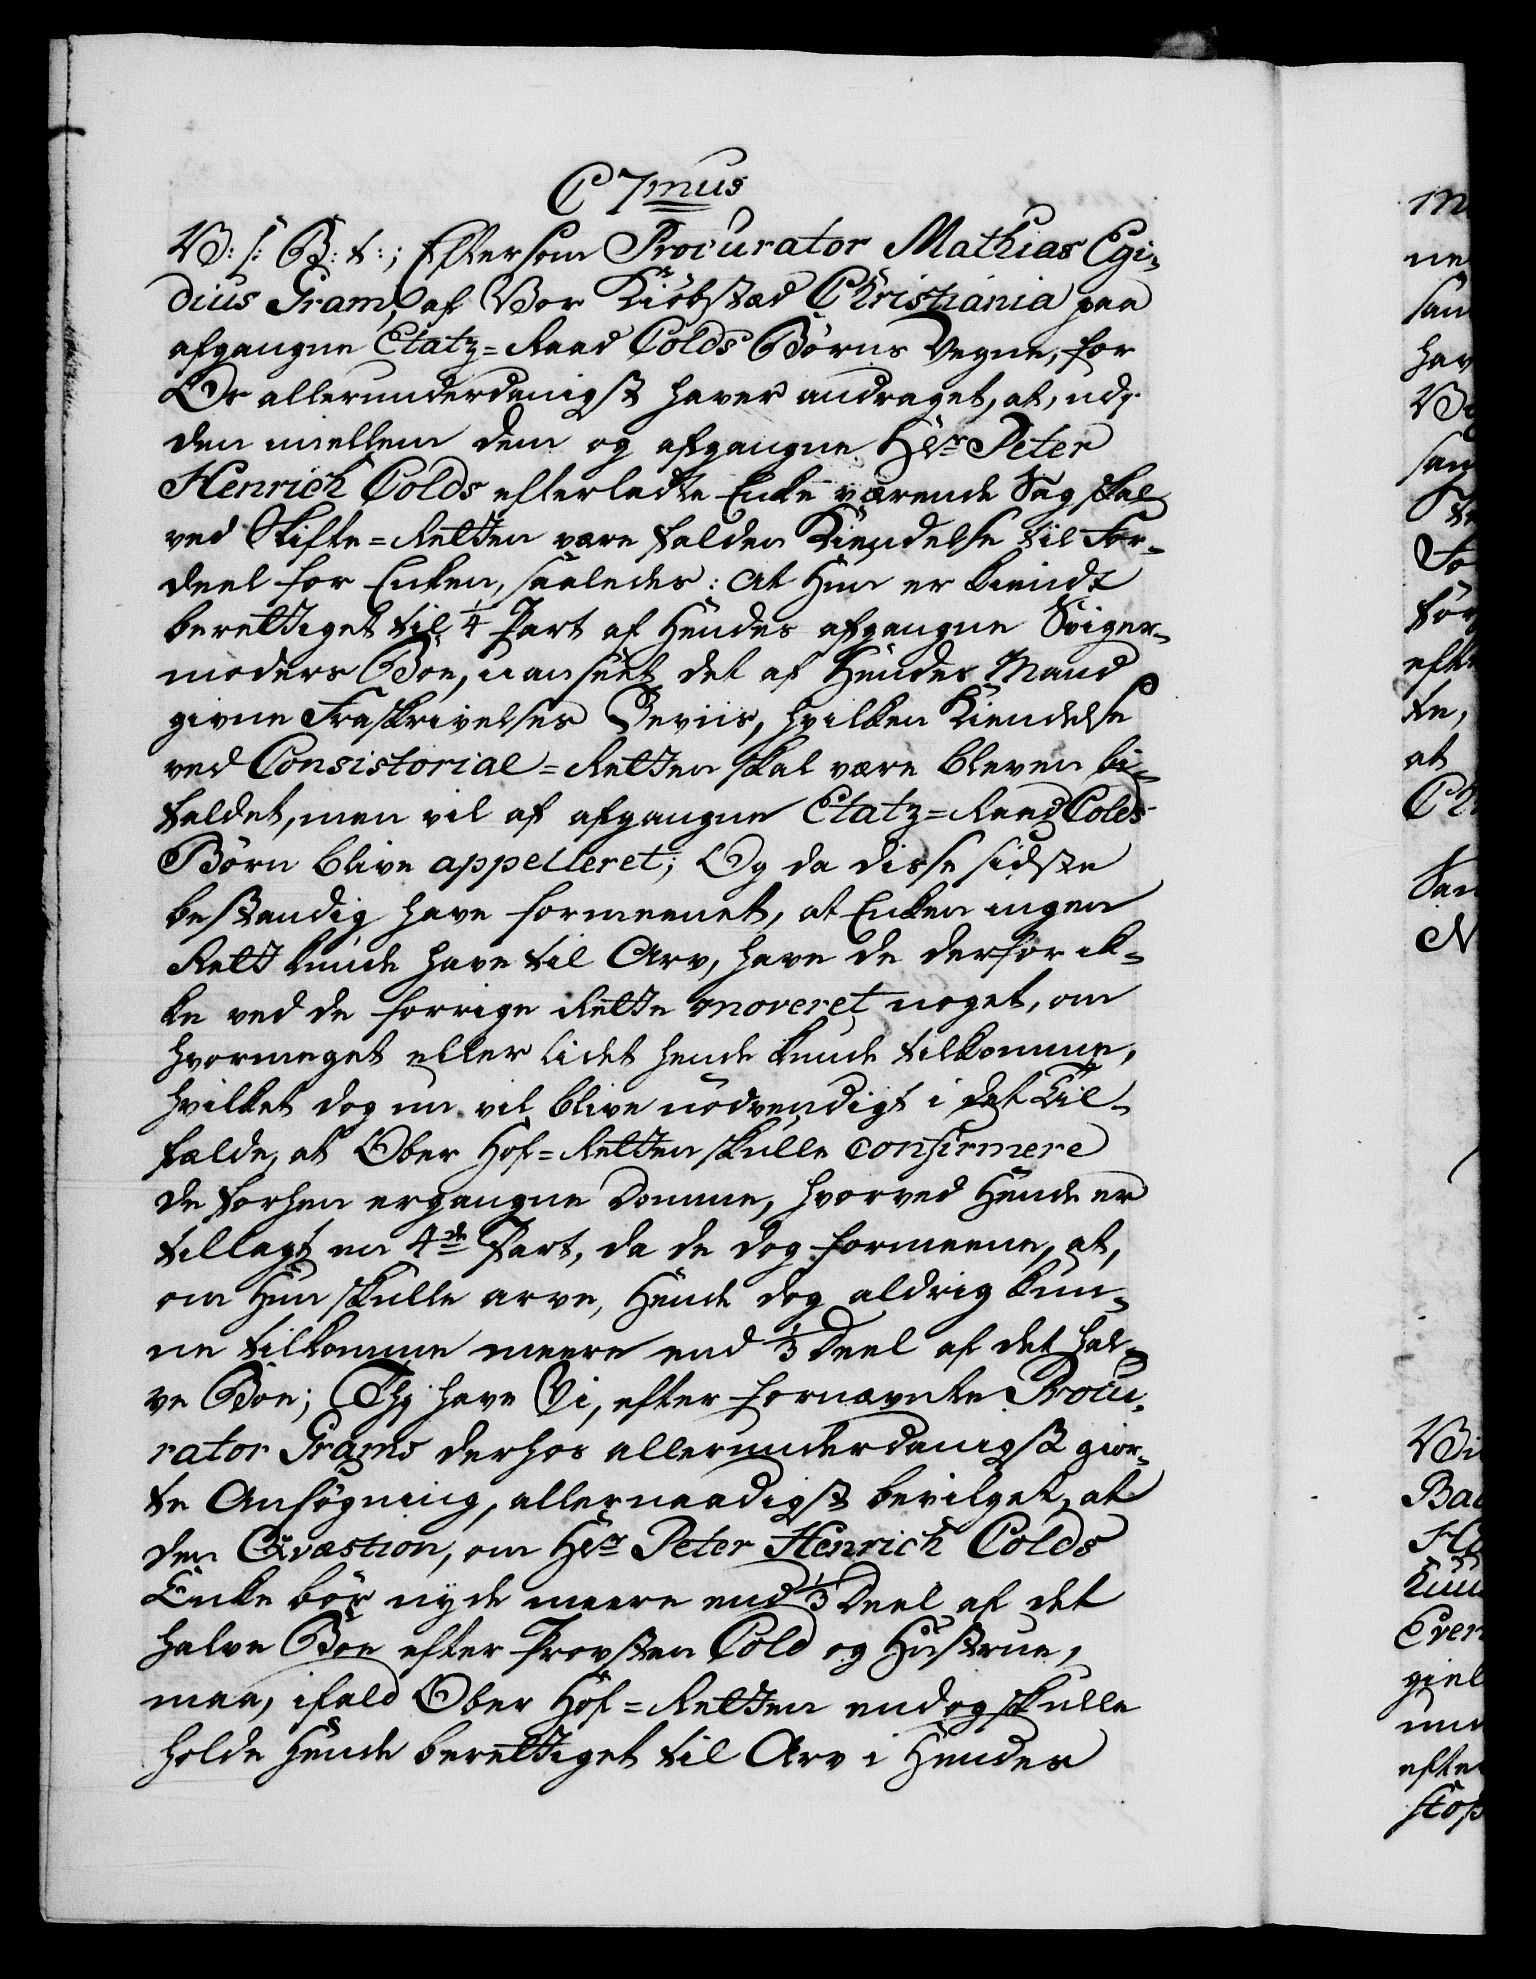 C 7mus
V: s: G: t:; Eftersom Procurator Mathias Egi-
dius Gram, af Vor Kiöbstæd Christiania paa
afgangne Etatz=Raad Colds Børns Vegne, for
Os allerunderdanigst haver andraget, at, udj
den mellem dem og afgangne Hr Peter
Henrich Colds efterladte Enke værende Sag, skal
ved Skifte=Retten være falden Kiendelse til For-
deel for Enken, saaledes: At Hun er kiendt
berettiget til 1/4 Part af Hendes afgangne Sviger-
moders Boe, uanseet det af Hendes Mand
givne Fraskrivelses Beviis, hvilken Kiendelse
ved Consistorial=Retten skal være bleven bi-
faldet, men vil af afgangne Etatz=Raad Colds
Børn blive appelleret; Og da disse sidste
bestandig have formeenet, at Enken ingen
Rett kunde have til Arv, have de derfor ik-
ke ved de forrige Rette moveret noget, om
hvormeget eller lidet hende kunde tilkomme,
hvilket dog nu vil blive nödvendigt i det Til-
fælde, at Ober Hof=Retten skulle confirmere
de forhen ergangne Domme, hvorved Hende er
tillagt en 4de Part, da de dog formeene, at,
om Hun skulle arve, Hende dog aldrig kun-
ne tilkomme meere end 1/3 Deel af det hal-
ve Boe; Thj have Vi, efter fornævnte Procu-
rator Grams derhos allerunderdanigst gior-
te Ansøgning, allernaadigst bevilget, at
den Qvæstion, om Hr Peter Henrich Colds
Enke bör nyde meere end 1/3 Deel af det
halve Boe efter Provsten Cold og Hustrue,
maa, ifald Ober Hof=Retten endog skulle
holde Hende berettiget til Arv i Hendes